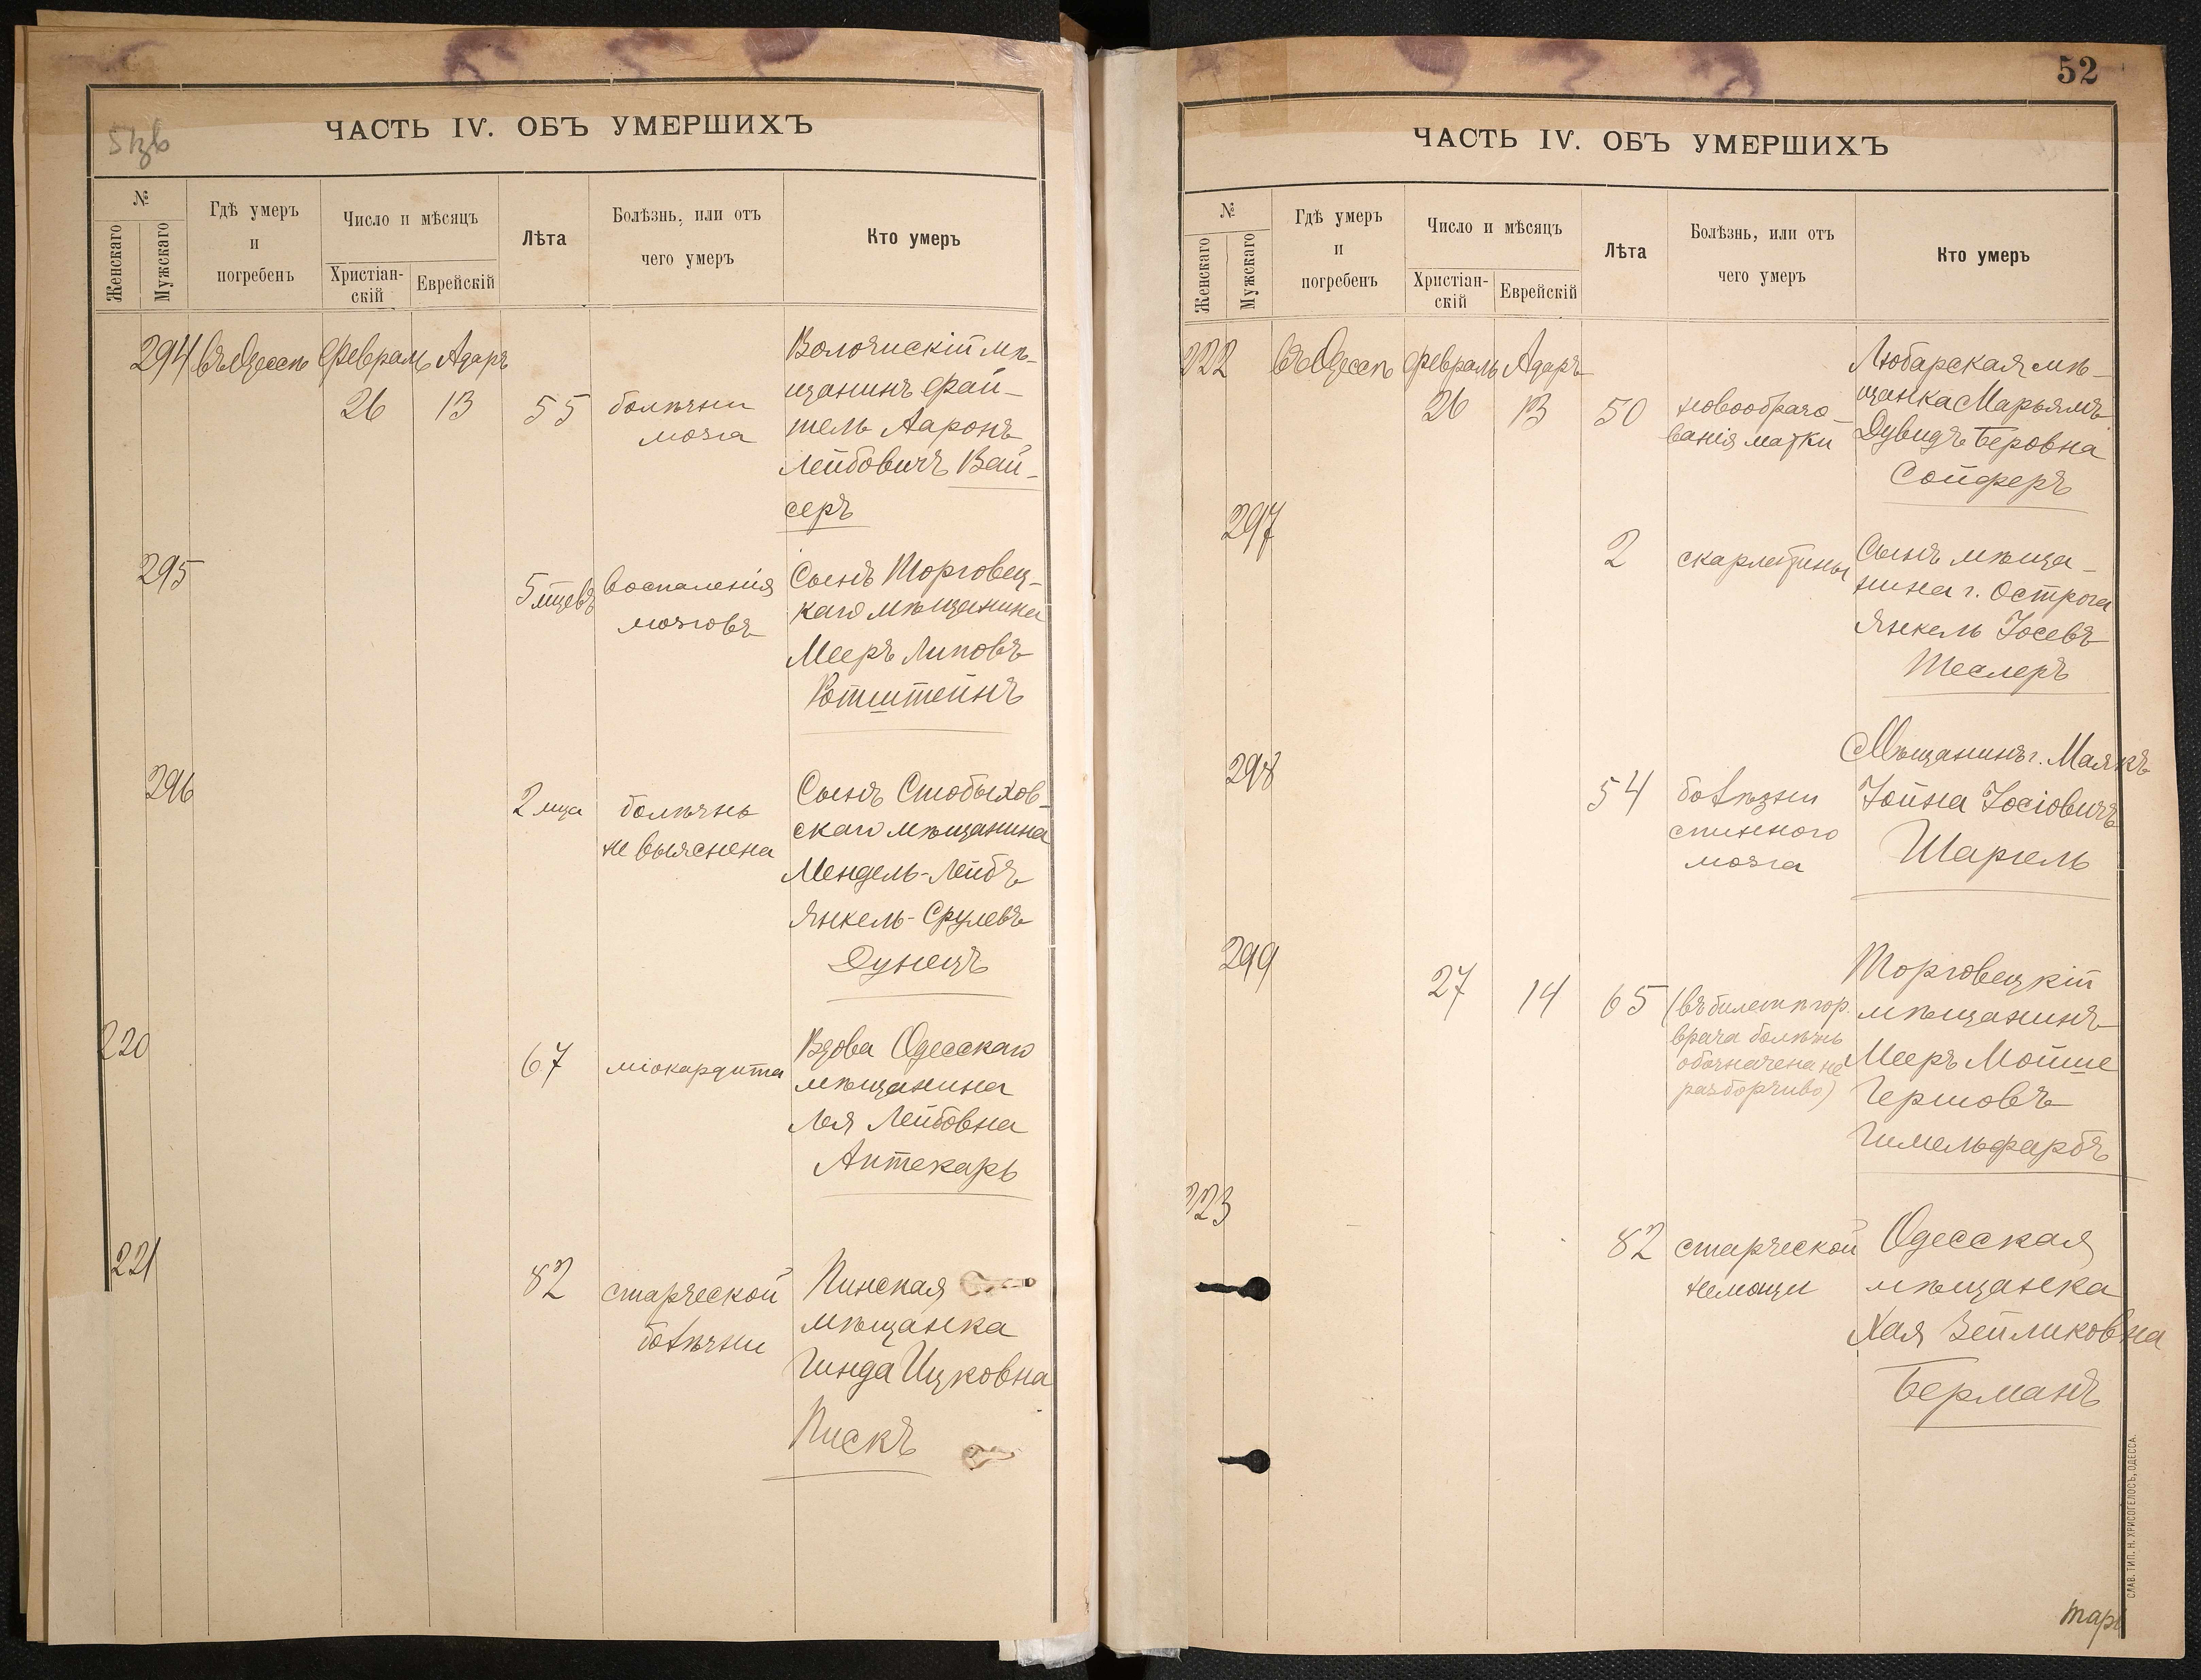 ЧАСТЬ IV. ОБЪ УМЕРШИХЪ
№
Женскаго
Мужскаго
Гдѣ умеръ
и
погребенъ
Число и мѣсяцъ
Христіан-
скій
Еврейскій
Лѣта
Болѣзнь, или отъ
чего умеръ
Кто умеръ
294 въ Одессѣ Февраль Адаръ
26 13 55 болѣзни
мозга
Волочискій мѣ-
щанинъ Фай-
тель Ааронъ
Лейбовичъ Вай-
серъ
295
5 мцевъ воспаленія
мозговъ
Сынъ Торговец-
каго мѣщанина
Мееръ Липовъ
Ротштейнъ
296
2 мца болѣзнь
не выяснена
Сынъ Стобыхов-
скаго мѣщанина
Мендель-Лейбъ
Янкель-Срулевъ
Дунецъ
220
67 міокардита
Вдова Одесскаго
мѣщанина
Лея Лейбовна
Аптекарь
221
82 старческой
болѣзни
Пинская
мѣщанка
Гинда Ицковна
Пискъ
52
ЧАСТЬ IV. ОБЪ УМЕРШИХЪ
№
Женскаго
Мужскаго
Гдѣ умеръ
и
погребенъ
Число и мѣсяцъ
Христіан-
скій
Еврейскій
Лѣта
Болѣзнь, или отъ
чего умеръ
Кто умеръ
222 въ Одессѣ Февраль Адаръ
26 13 50 новообразо-
ванія матки
Любарская мѣ-
щанка Марьямъ
Дувидъ Беровна
Сойферъ
297
2 скарлатины
Сынъ мѣща-
нина г. Острога
Янкель Іосевъ
Теслеръ
298
54 болѣзни
спинного
мозга
Мѣщанинъ г. Маякъ
Іойна Іосіовичъ
Шаргель
299
27 14 65 (въ билетѣ гор.
врача болѣзнь
обозначена не
разборчиво)
Торговецкій
мѣщанинъ
Мееръ Мойше
Гершовъ
Гимельфарбъ
223
82 старческой
немощи
Одесская
мѣщанка
Хая Зейликовна
Берманъ
СЛАВ. ТИП. Н. ХРИСОГЕЛОСЪ, ОДЕССА.